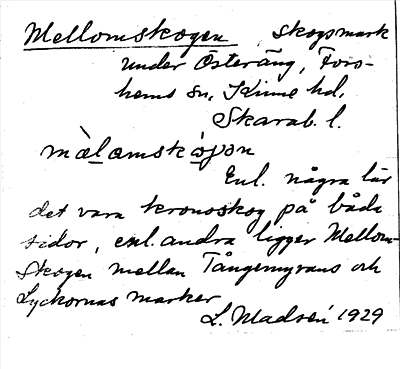 Mellomskogen, skogsmark
under Österäng, Fors-
hems sn, Kinne hd,
Skarab. l.
mälamskógen
Enl. några lär
det vara kronoskog på båda
sidor, enl. andra ligger Mellom-
skogen mellan Tångemyrans och
Lyckornas marker
L. Madsén 1929